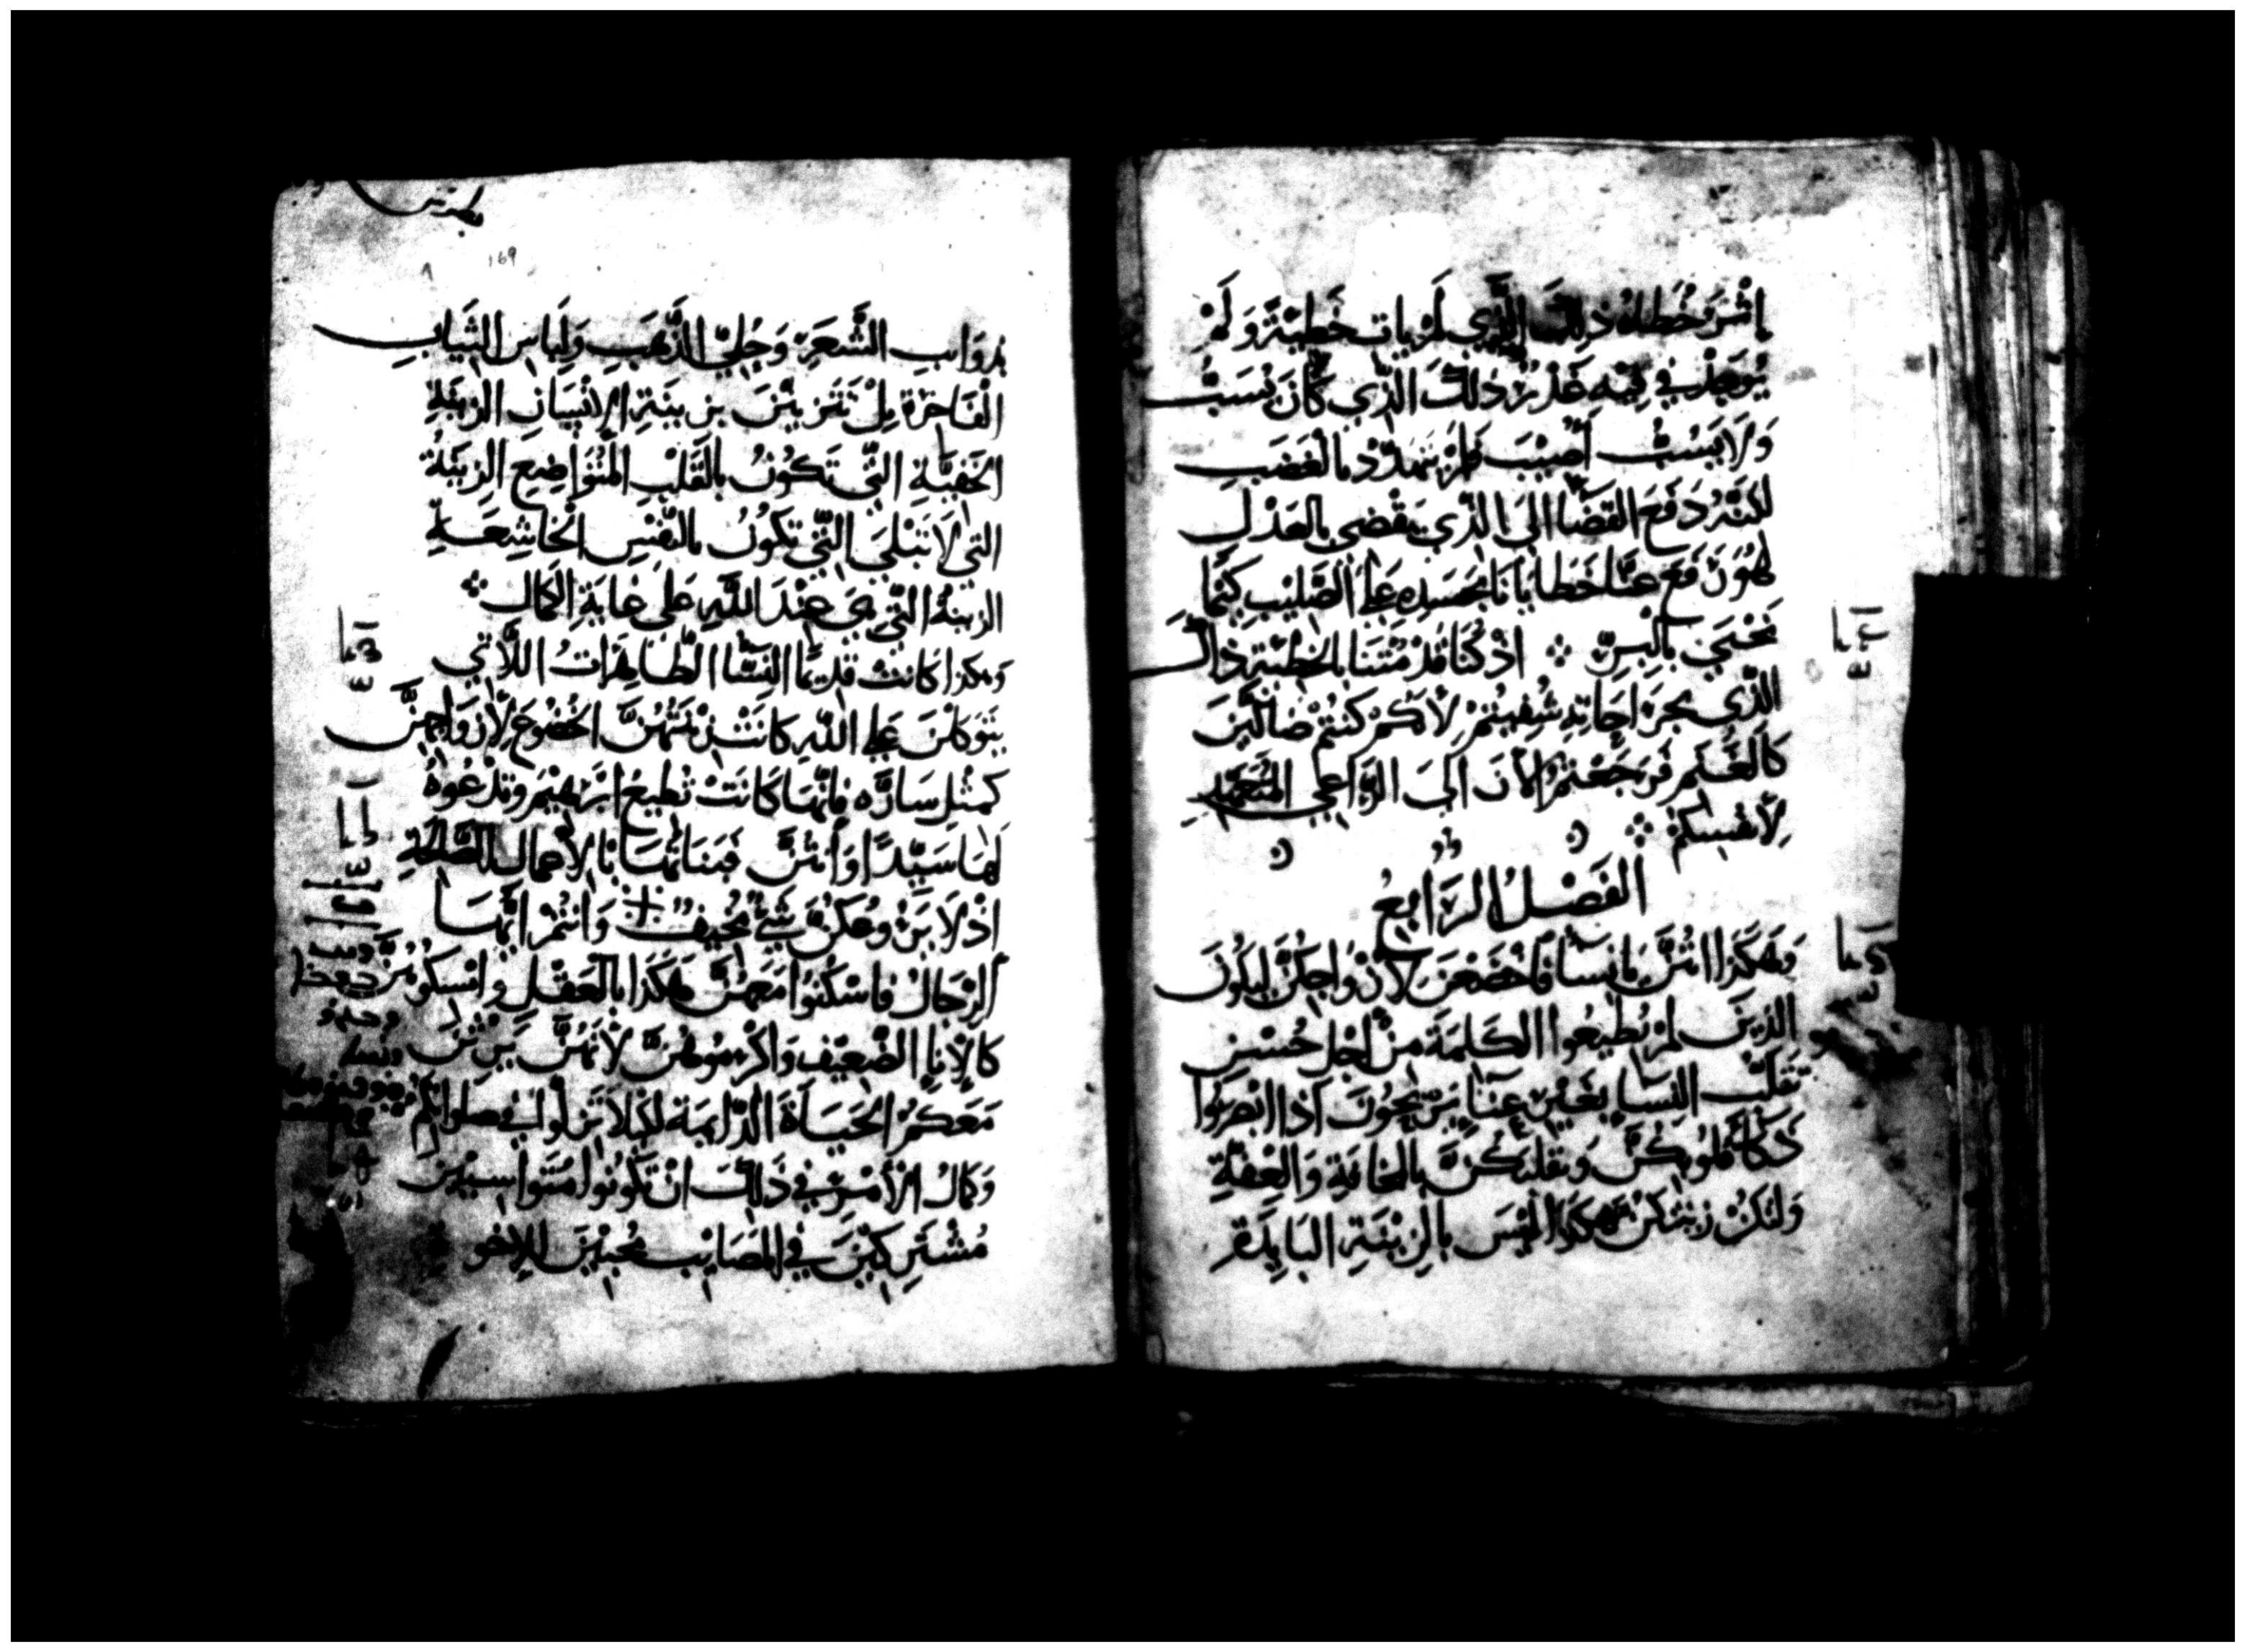 اثره خطاه ذلك الذي لم يات خطية ولم
يوجد في فمه غدر ذلك الذي كان يسب
ولا يسب اصيب فلم يتهدد بالغضب
لكنه دفع القضا الى الذي يقضي بالعدل
لهو رفع عنا خطايانا بجسده على الصليب كيما
نحيى بالبر ܀ اذ كنا قد متنا بالخطية ذاك
الذي بجراحاته شفيتم لانكم كنتم ضالين
كالغنم فرجعتم الان الى الراعي المتعهد
لانفسكم ܀
الفصل الرابع
وهكذا انتن يا نسا فاخضعن لازواجكن ليكون
الذين لم يطيعوا الكلمة من اجل حسن
تقلب النسا بغير عنا يربحون اذا ابصروا
ذكا قلوبكن وتقلبكن بالمخافة والعفة
ولتكن زينتكن هكذا ليس بالزينة البايدة
بذوايب الشعر وحلي الذهب ولباس الثياب
الفاخرة بل تتزين بزينة الانسان الزينة
الخفية التي تكون بالقلب المتواضع الزينة
التي لا تبلى التي تكون بالنفس الخاشعة
الزينة التي هي عند الله على غاية الكمال ܀
وهكذا كانت قديما النسا الطاهرات اللاتي
يتوكلن على الله كانت زينتهن الخضوع لازواجهن
كمثل ساره فانها كانت تطيع ابرهيم وتدعوه
لها سيدا وانتن فبناتها بالاعمال الصالحة
اذ لا يرعكن شي مخيف + وانتم ايها
الرجال فاسكنوا معهن هكذا بالعقل وامسكوهن
كالانا الضعيف واكرموهن لانهن يرثن
معكم الحياة الدايمة لكيلا تزلوا في صلواتكم
وكمال الامر في ذلك ان تكونوا متواسيين
مشتركين في المصايب محبين للاخو